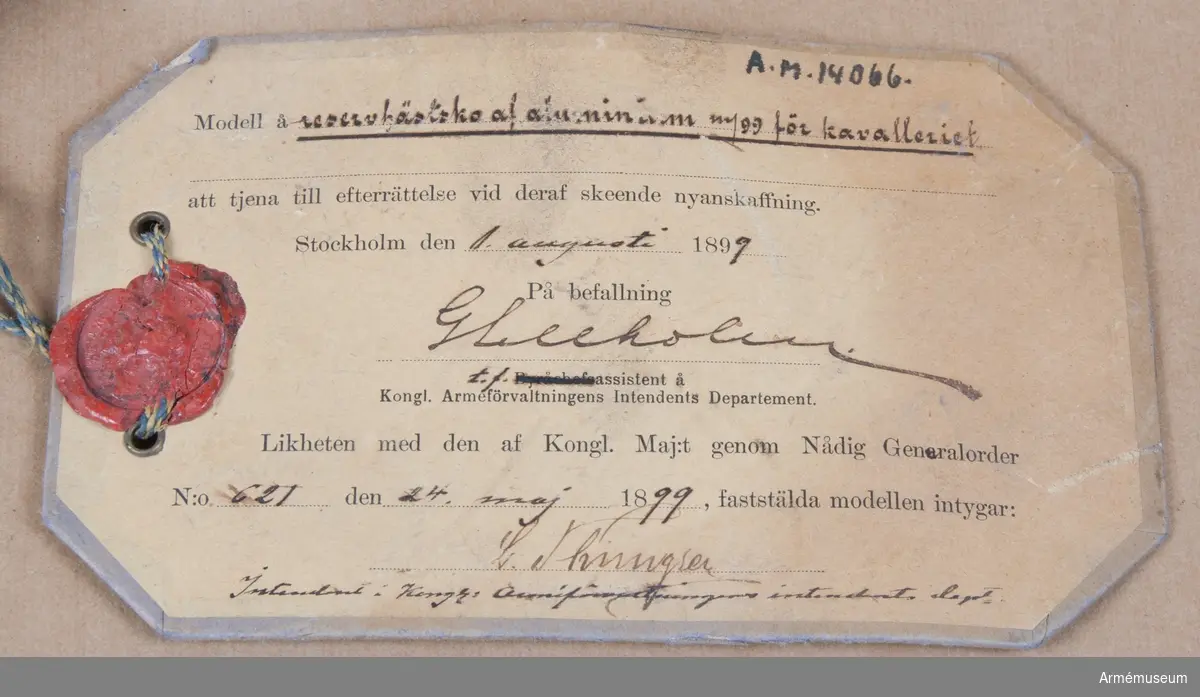 A.M. 14066.
Modell å reservhästsko af aluminium m/99 för kavalleriet
att tjena till efterrättelse vid deraf skeende nyanskaffning.
Stockholm den 1. augusti 1899
På befallning
t.f. Byråchefsassistent å
Kongl. Arméförvaltningens Intendents Departement.
Likheten med den af Kongl. Maj:t genom Nådig Generalorder
N:o. 621 den 24. maj 1899, faststälda modellen intygar:
Intendent i Kongl: Arméförvaltningens intendents dept.
Armémuseum